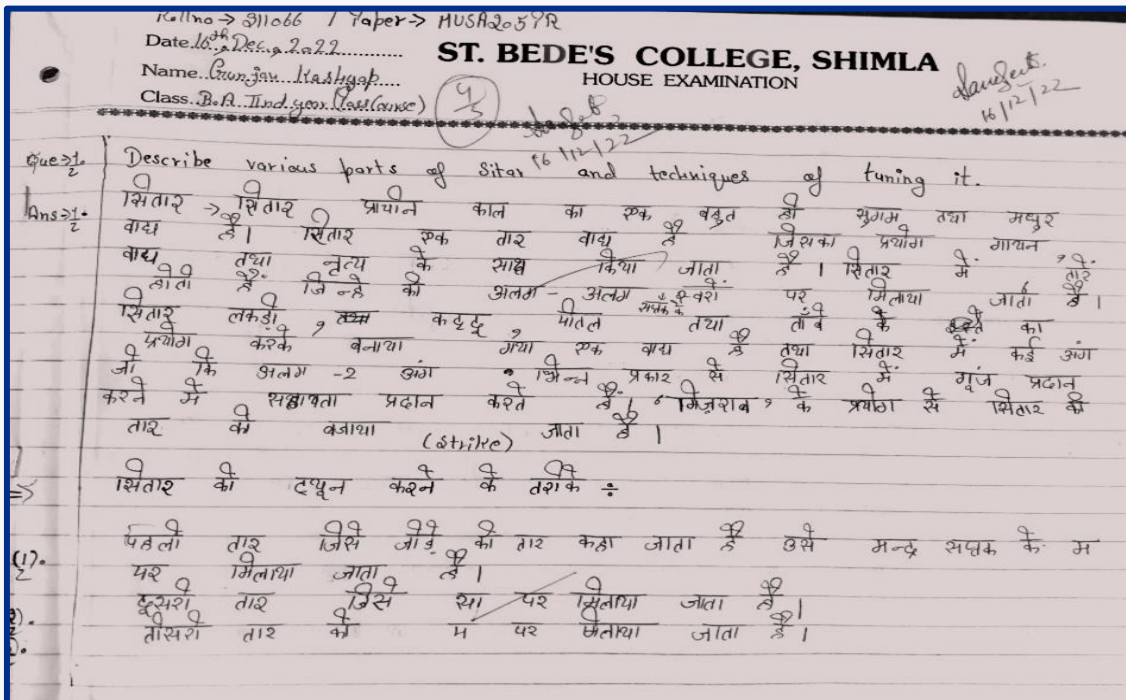 Rollno → 211066 / Paper → MUSA205PR
Date 16th, Dec, 2022
ST. BEDE'S COLLEGE, SHIMLA
Name Gunjan Kashyap
HOUSE EXAMINATION
Class B.A IInd year (Pass Course)
16/12/22
16/12/22
Que→1. Describe various parts of Sitar and techniques of tuning it.
Ans→1. सितार → सितार प्राचीन काल का एक बहुत ही सुगम तथा मधुर
वाद्य है। सितार एक तार वाद्य है जिसका प्रयोग गायन,
वाद्य तथा नृत्य के साथ किया जाता है। सितार में तारे
होती हैं जिन्हें की अलग-अलग सप्तक के स्वरों पर मिलाया जाता है।
सितार लकड़ी, कद्दू, पीतल तथा तांबे के का
प्रयोग करके बनाया गया एक वाद्य है तथा सितार में कई अंग
जो कि अलग-2 अंग भिन्न प्रकार से सितार में गूंज प्रदान
करने में सहायता प्रदान करते हैं। 'मिज़राब' के प्रयोग से सितार की
तार को बजाया (strike) जाता है।
सितार को ट्यून करने के तरीके ÷
(1). पहली तार जिसे जोड़े की तार कहा जाता है उसे मन्द्र सप्तक के म
पर मिलाया जाता है।
दूसरी तार जिसे सा पर मिलाया जाता है।
तीसरी तार को म पर मिलाया जाता है।